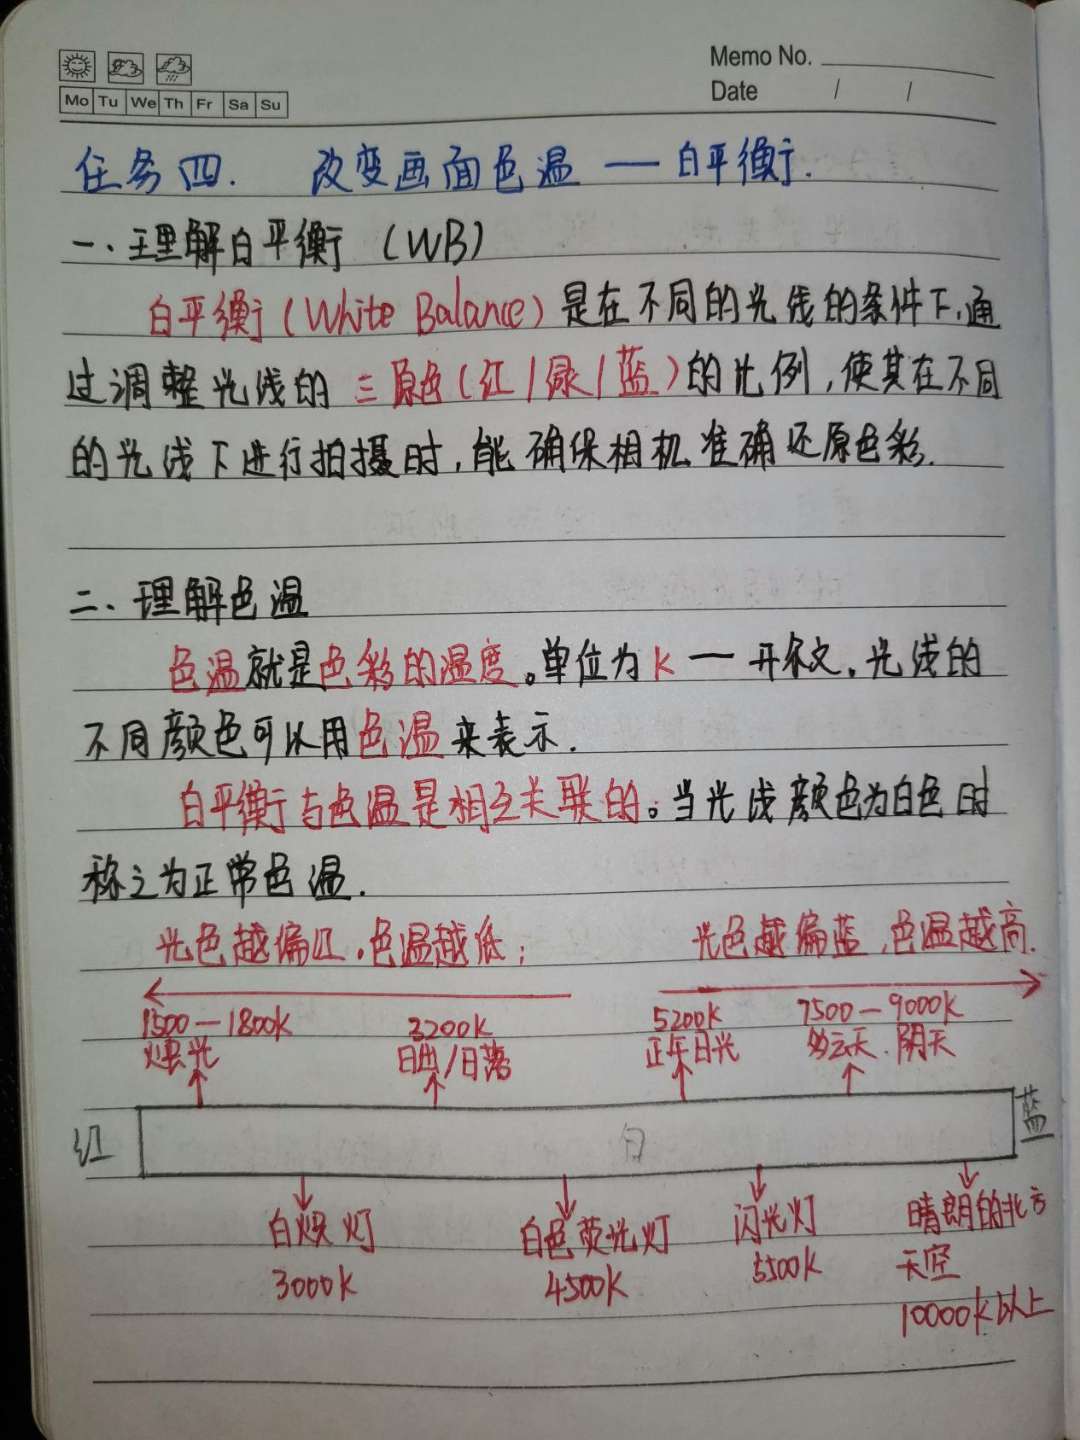 Memo No.
Mo Tu We Th Fr Sa Su
Date / /
任务四. 改变画面色温 — 白平衡.
一、理解白平衡 (WB)
白平衡 (White Balance) 是在不同的光线的条件下,通
过调整光线的三原色(红/绿/蓝)的比例,使其在不同
的光线下进行拍摄时,能确保相机准确还原色彩.
二、理解色温
色温就是色彩的温度。单位为K — 开尔文.光线的
不同颜色可以用色温来表示.
白平衡与色温是相互关联的。当光线颜色为白色时
称之为正常色温.
光色越偏红.色温越低; 光色越偏蓝,色温越高.
1500—1800K 3200K 5200K 7500—9000K
烛光 日出/日落 正午日光 多云天.阴天
红 白 蓝
白炽灯 白色荧光灯 闪光灯 晴朗的北方
3000K 4500K 5500K 天空
10000K以上